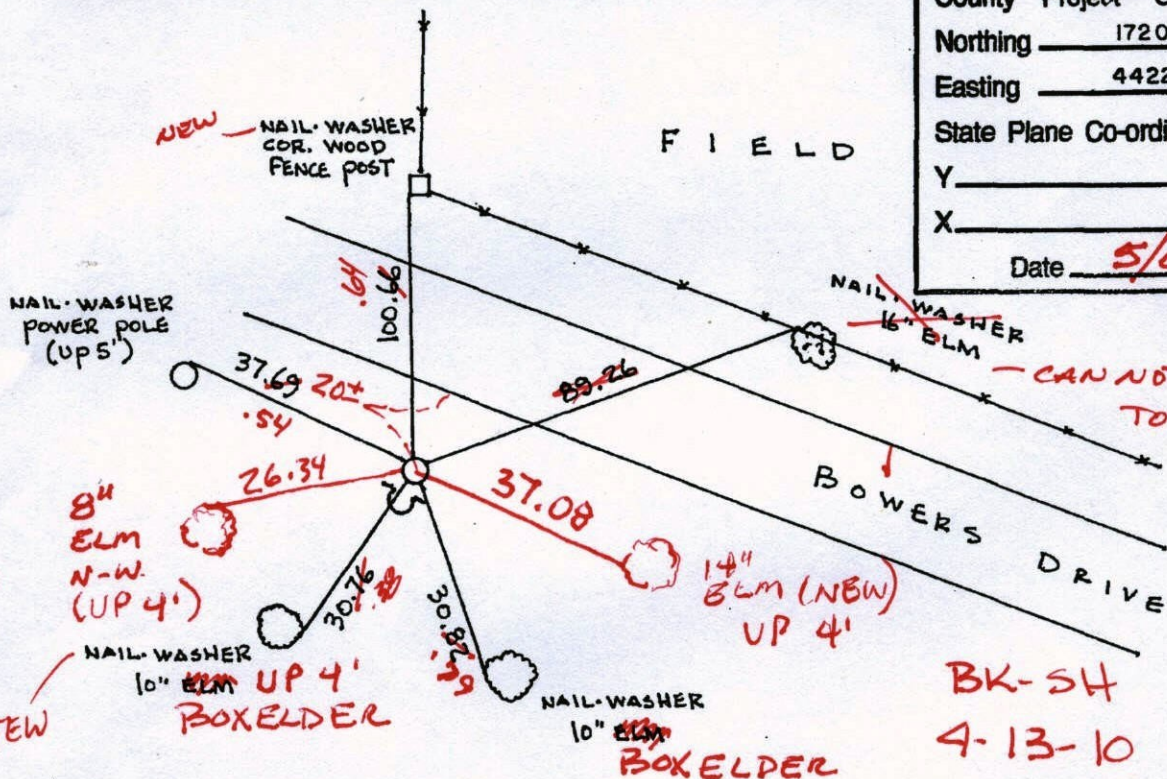 County Project
Northing 1720
Easting 4422
State Plane Co-ordi
Y
X
Date 5/
NEW
NAIL·WASHER
COR. WOOD
FENCE POST
FIELD
100.66
.64
NAIL·WASHER
POWER POLE
(UP 5')
37.69
.54
20±
89.26
NAIL·WASHER
16" ELM
CAN NO
TO
26.34
8"
ELM
N-W.
(UP 4')
37.08
14"
ELM (NEW)
UP 4'
BOWERS DRIVE
30.76
30.82
NAIL·WASHER
10" ELM UP 4'
BOXELDER
EW
NAIL·WASHER
10" ELM
BOXELDER
BK-SH
4-13-10